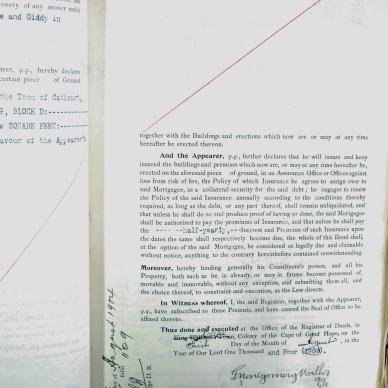 overy of any money under
e and Giddy in
arer, q.q., hereby declares
certain piece of Ground
the Town of Cathcart,
G, BLOCK D:-
e SQUARE FEET:-
avour of the Appearer's
together with the Buildings and erections which now are or may at any time
hereafter be erected thereon.
And the Appearer, q.q., further declares that he will insure and keep
insured the buildings and premises which now are, or may at any time hereafter be,
erected on the aforesaid piece of ground, in an Assurance Office or Offices against
loss from risk of fire, the Policy of which Insurance he agrees to assign over to
said Mortgagee, as a collateral security for the said debt; he engages to renew
the Policy of the said Insurance annually according to the conditions thereby
required, as long as the debt, or any part thereof, shall remain unliquidated, and
that unless he shall do so and produce proof of having so done, the said Mortgagee
shall be authorised to pay the premiums of Insurance, and that unless he shall pay
the ---half-yearly,---Interest and Premium of such Insurance upon
the dates the same shall respectively become due, the whole of this Bond shall,
at the option of the said Mortgagee, be considered as legally due and claimable
without notice, anything to the contrary hereinbefore contained notwithstanding.
Moreover, hereby binding generally his Constituent's person, and all his
Property, both such as he is already, or may in future become possessed of,
movable and immovable, without any exception, and submitting them all, and
the choice thereof, to constraint and execution, as the Law directs.
In Witness whereof, I, the said Registrar, together with the Appearer,
q.q., have subscribed to these Presents, and have caused the Seal of Office to be
affixed thereto.
Thus done and executed at the Office of the Registrar of Deeds, in
Colony of the Cape of Good Hope, on the
Day of the Month of August, in the
Year of Our Lord One Thousand and Four (1904).
August 1904
Montgomery Walker